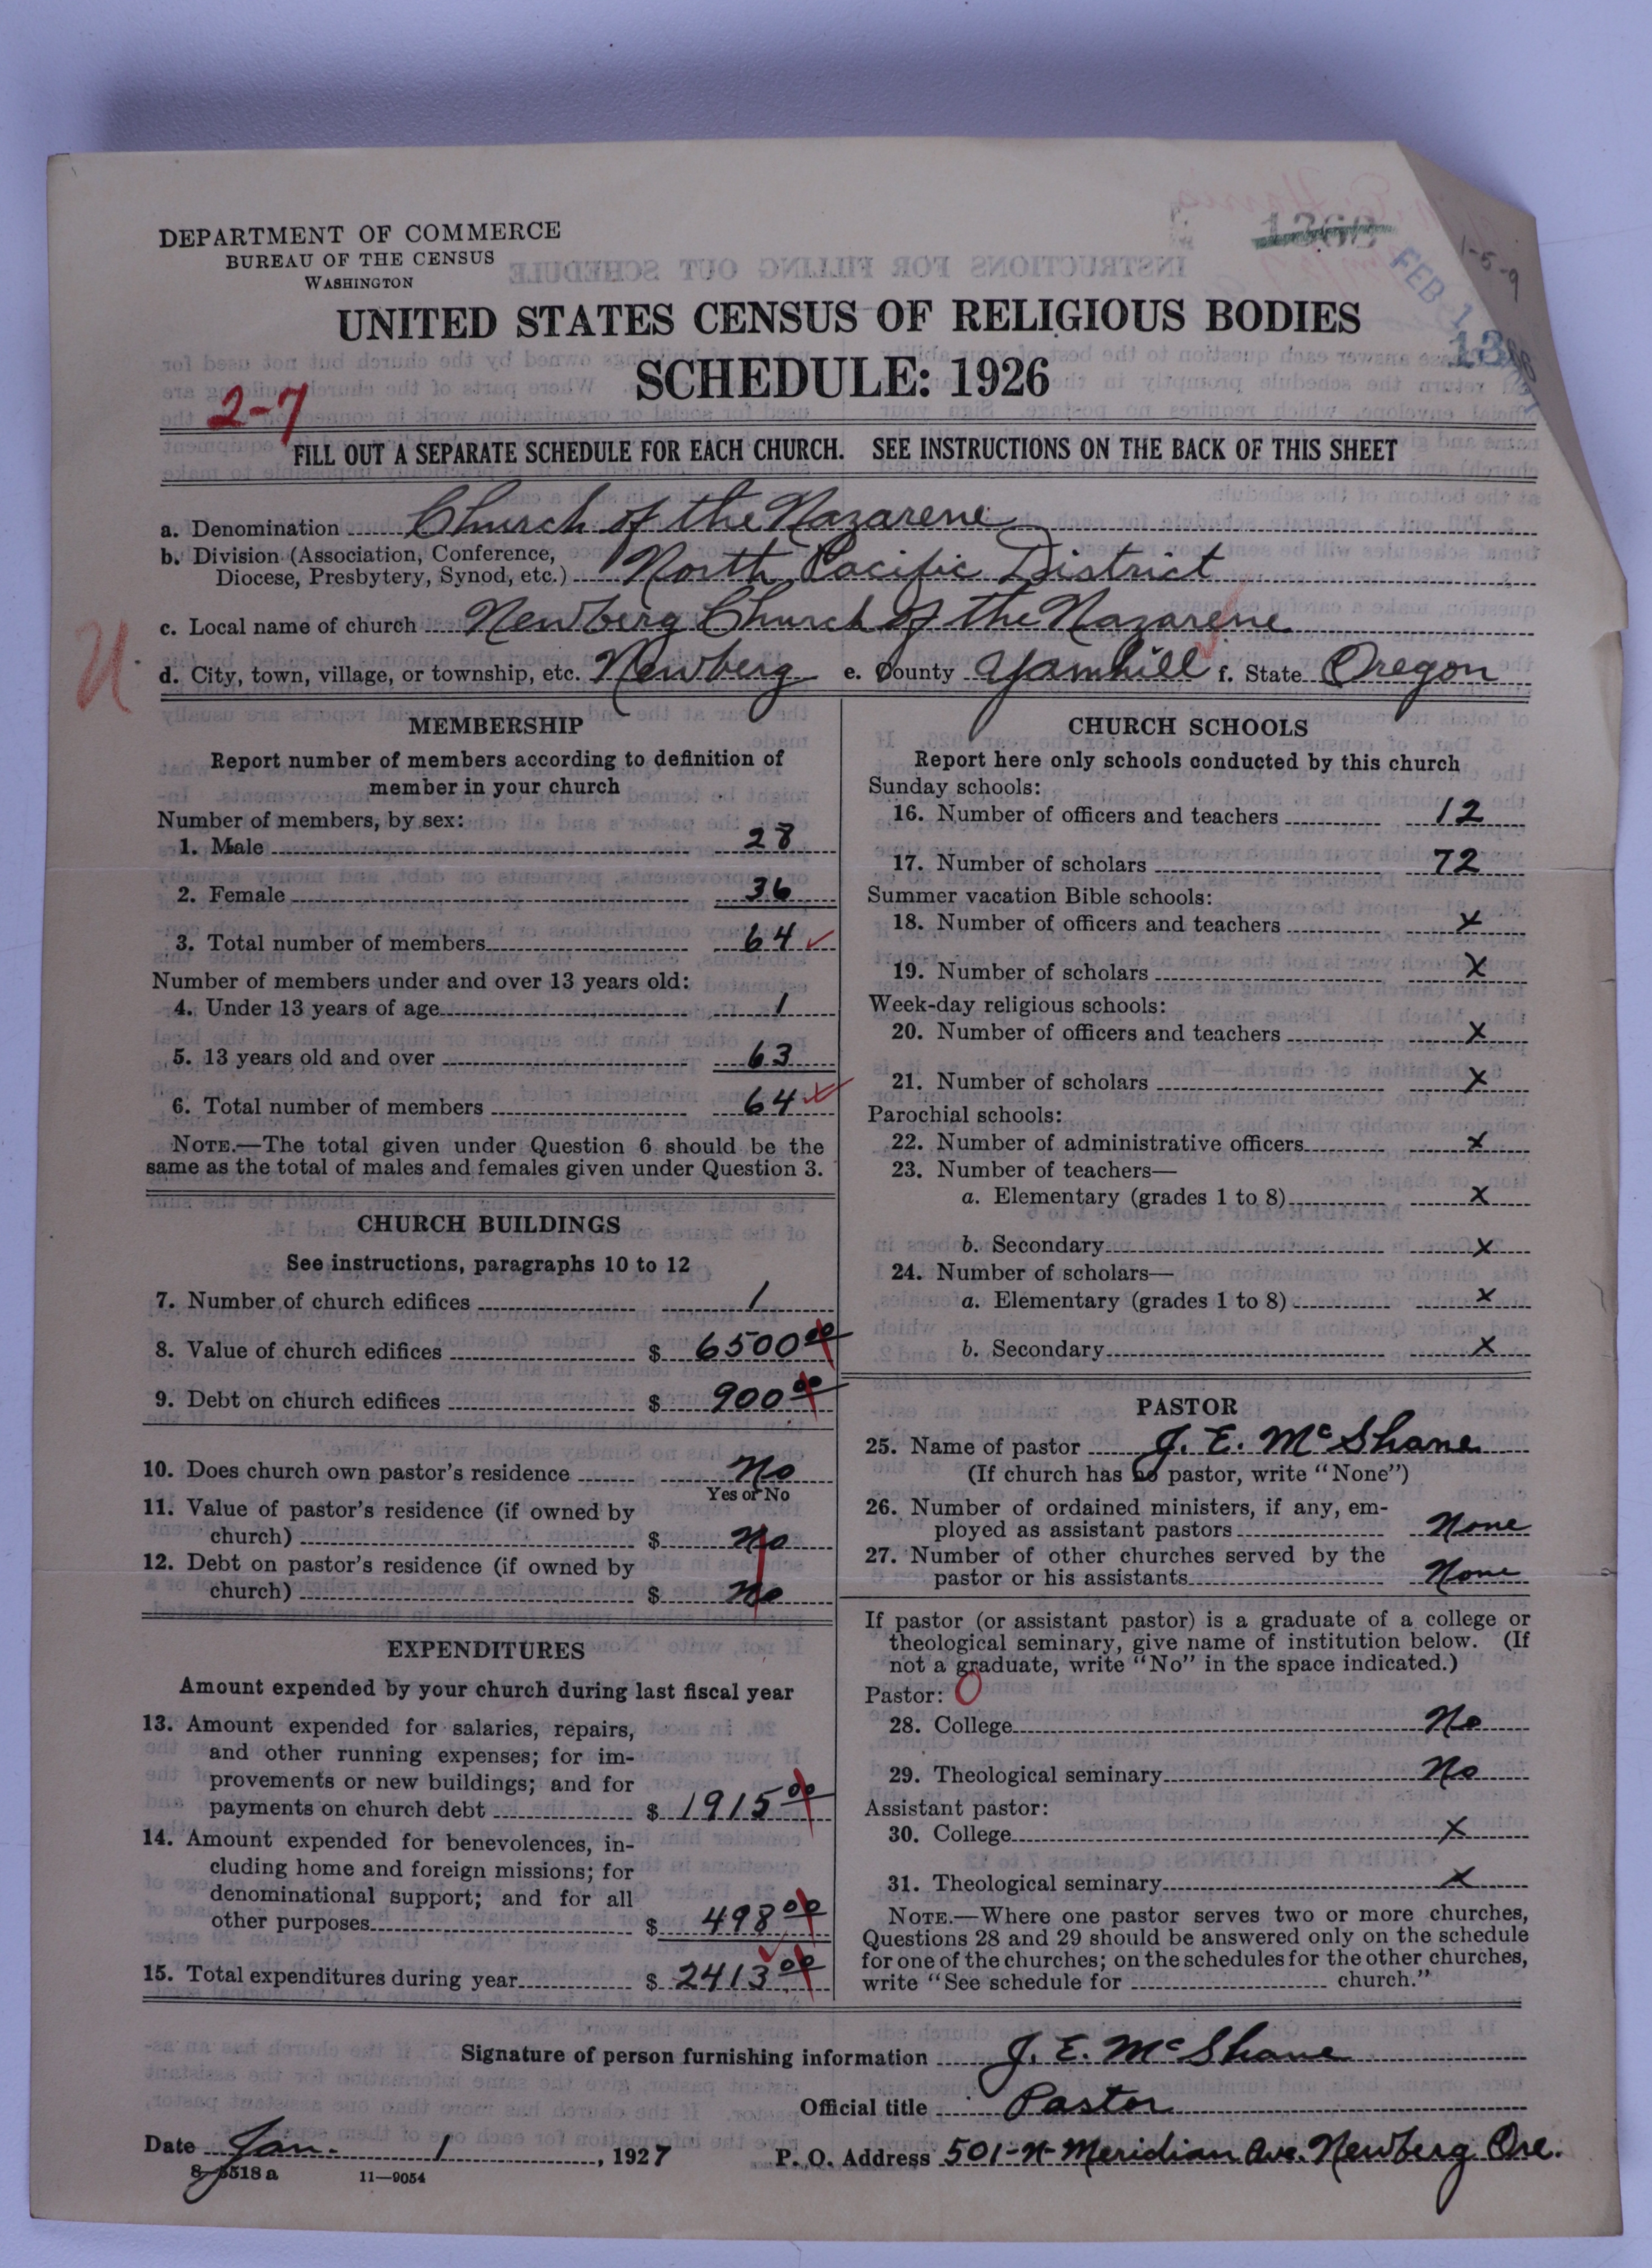 1360
1-5-9
FEB 1
DEPARTMENT OF COMMERCE
BUREAU OF THE CENSUS
WASHINGTON
UNITED STATES CENSUS OF RELIGIOUS BODIES
SCHEDULE: 1926
2-7
FILL OUT A SEPARATE SCHEDULE FOR EACH CHURCH. SEE INSTRUCTIONS ON THE BACK OF THIS SHEET
a. Denomination Church of the Nazarene
b. Division (Association, Conference,
Diocese, Presbytery, Synod, etc.) North Pacific District
c. Local name of church Newberg Church of the Nazarene
d. City, town, village, or township, etc. Newberg e. County Yamhill f. State Oregon
MEMBERSHIP
Report number of members according to definition of
member in your church
Number of members, by sex:
1. Male 28
2. Female 36
3. Total number of members 64
Number of members under and over 13 years old:
4. Under 13 years of age 1
5. 13 years old and over 63
6. Total number of members 64
NOTE.—The total given under Question 6 should be the
same as the total of males and females given under Question 3.
CHURCH BUILDINGS
See instructions, paragraphs 10 to 12
7. Number of church edifices 1
8. Value of church edifices $ 6500 00
9. Debt on church edifices $ 900 00
10. Does church own pastor's residence No
Yes or No
11. Value of pastor's residence (if owned by
church) $ No
12. Debt on pastor's residence (if owned by
church) $ No
EXPENDITURES
Amount expended by your church during last fiscal year
13. Amount expended for salaries, repairs,
and other running expenses; for im-
provements or new buildings; and for
payments on church debt $ 1915 00
14. Amount expended for benevolences, in-
cluding home and foreign missions; for
denominational support; and for all
other purposes $ 498 00
15. Total expenditures during year $ 2413 00
CHURCH SCHOOLS
Report here only schools conducted by this church
Sunday schools:
16. Number of officers and teachers 12
17. Number of scholars 72
Summer vacation Bible schools:
18. Number of officers and teachers X
19. Number of scholars X
Week-day religious schools:
20. Number of officers and teachers X
21. Number of scholars X
Parochial schools:
22. Number of administrative officers X
23. Number of teachers—
a. Elementary (grades 1 to 8) X
b. Secondary X
24. Number of scholars—
a. Elementary (grades 1 to 8) X
b. Secondary X
PASTOR
25. Name of pastor J. E. McShane
(If church has no pastor, write "None")
26. Number of ordained ministers, if any, em-
ployed as assistant pastors None
27. Number of other churches served by the
pastor or his assistants None
If pastor (or assistant pastor) is a graduate of a college or
theological seminary, give name of institution below. (If
not a graduate, write "No" in the space indicated.)
Pastor: 0
28. College No
29. Theological seminary No
Assistant pastor:
30. College X
31. Theological seminary X
NOTE.—Where one pastor serves two or more churches,
Questions 28 and 29 should be answered only on the schedule
for one of the churches; on the schedules for the other churches,
write "See schedule for church."
Signature of person furnishing information J. E. McShane
Official title Pastor
Date Jan. 1, 1927 P. O. Address 501-N-Meridian Ave. Newberg Ore.
8-5518 a 11—9054